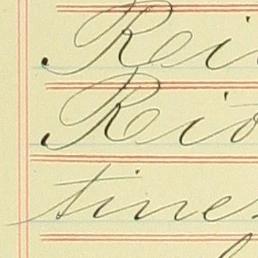 Rei
Reid
tines